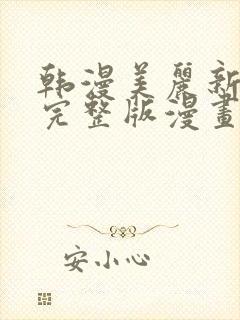 韩漫美麗新
完整版漫畫
安小心